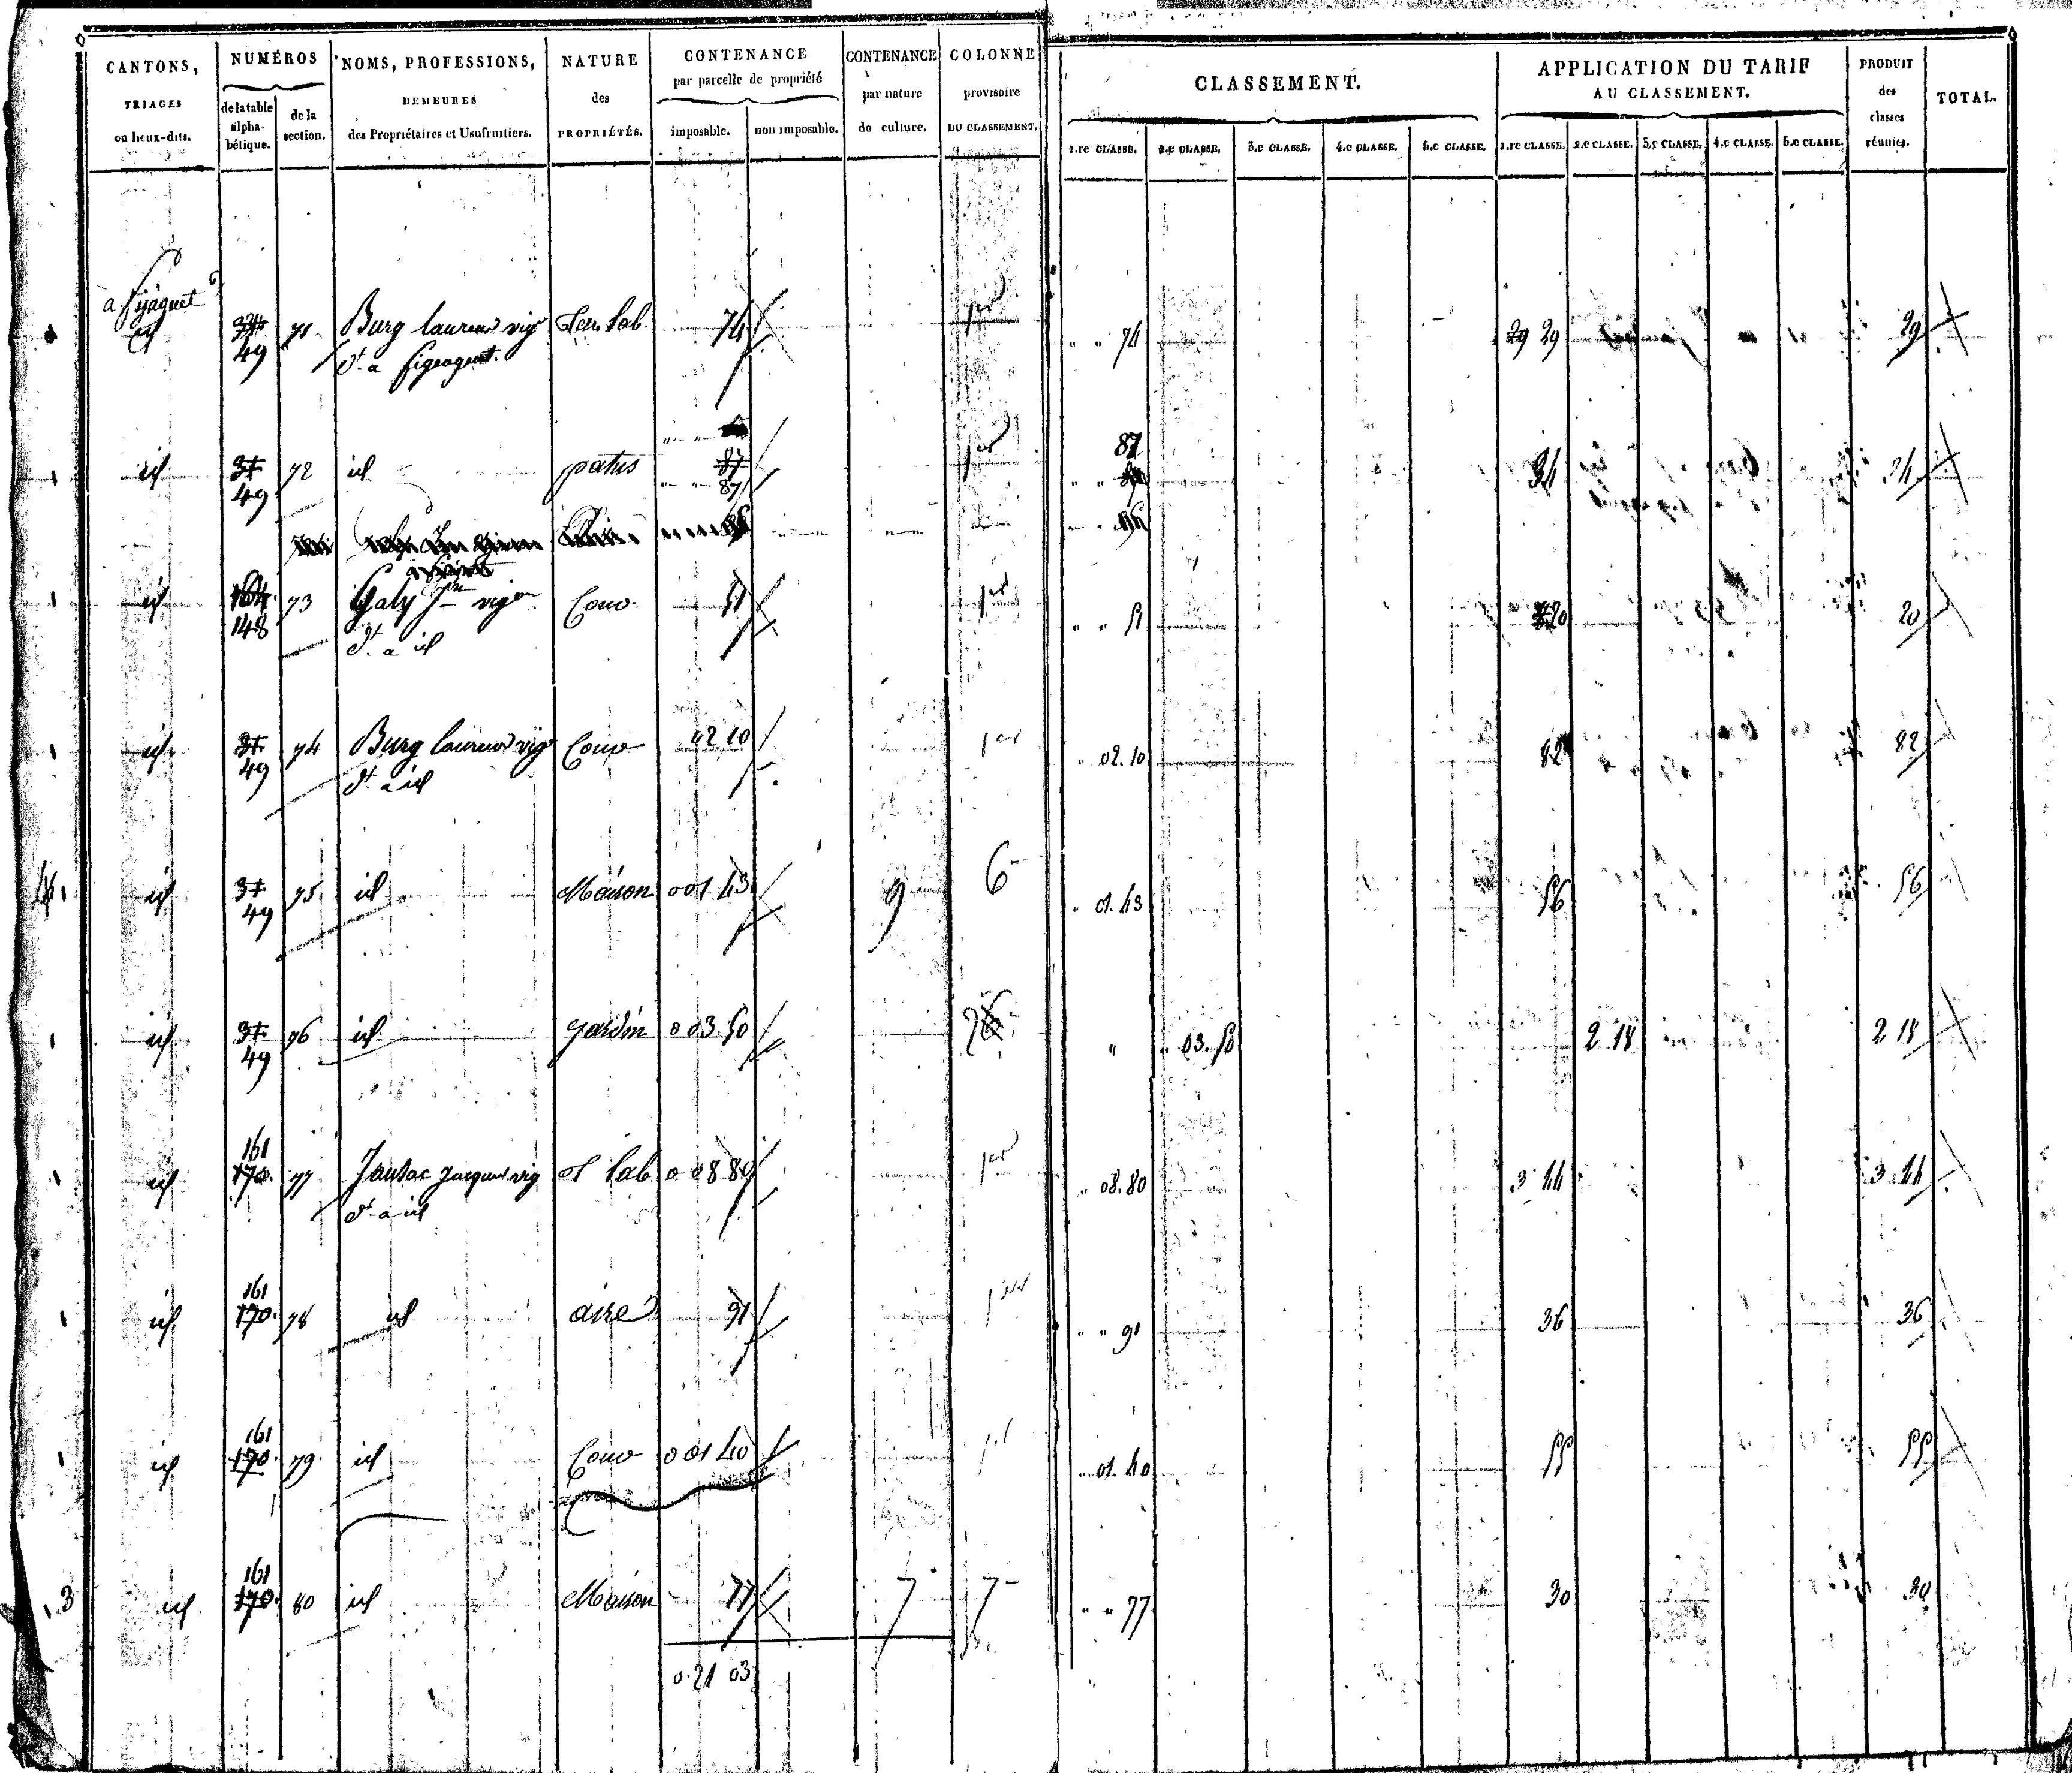 CANTONS, TRIAGES ou lieux-dits. NUMÉROS de la table alpha-bétique. de la section. NOMS, PROFESSIONS, DEMEURES des Propriétaires et Usufruitiers. NATURE des PROPRIÉTÉS. CONTENANCE par parcelle de propriété imposable. non imposable. CONTENANCE par nature de culture. COLONNE provisoire DU CLASSEMENT. CLASSEMENT. 1.re CLASSE. 2.e CLASSE. 3.e CLASSE. 4.e CLASSE. 5.e CLASSE. APPLICATION DU TARIF AU CLASSEMENT. 1.re CLASSE. 2.e CLASSE. 3.e CLASSE. 4.e CLASSE. 5.e CLASSE. PRODUIT des classes réunies. TOTAL.
id 49 71 Burg laurens vig.r lab. 74 per " " 74 29 29 29
d.t a figeaguet.
id 37 49 72 id patus 87 87 per 87 " " 34 34
id 164 148 73 Galy J.n vig.on Couv 51 per " " 51 20 20
d.t a id
id 37 49 74 Burg laurens vig Couv 02 10 per " 02.10 82 82
d.t à id
id 37 49 75 id Maison 0 01 43 9 6 " 01.43 56 56
id 37 49 76 id jardin 0 03 50 " " 03.50 2.18 2 18
id 161 170. 77 Jaulac Jacques vig et lab 0 08 80 per " 08.80 3 44 3 44
d.t a id
id 161 170. 78 id aire 91 per " " 91 36 36
id 161 170. 79 id Couv 0 01 40 per " 01.40 55 55
3 id 161 170. 80 id Maison 77 7 7 " " 77 30 30
0.21 03